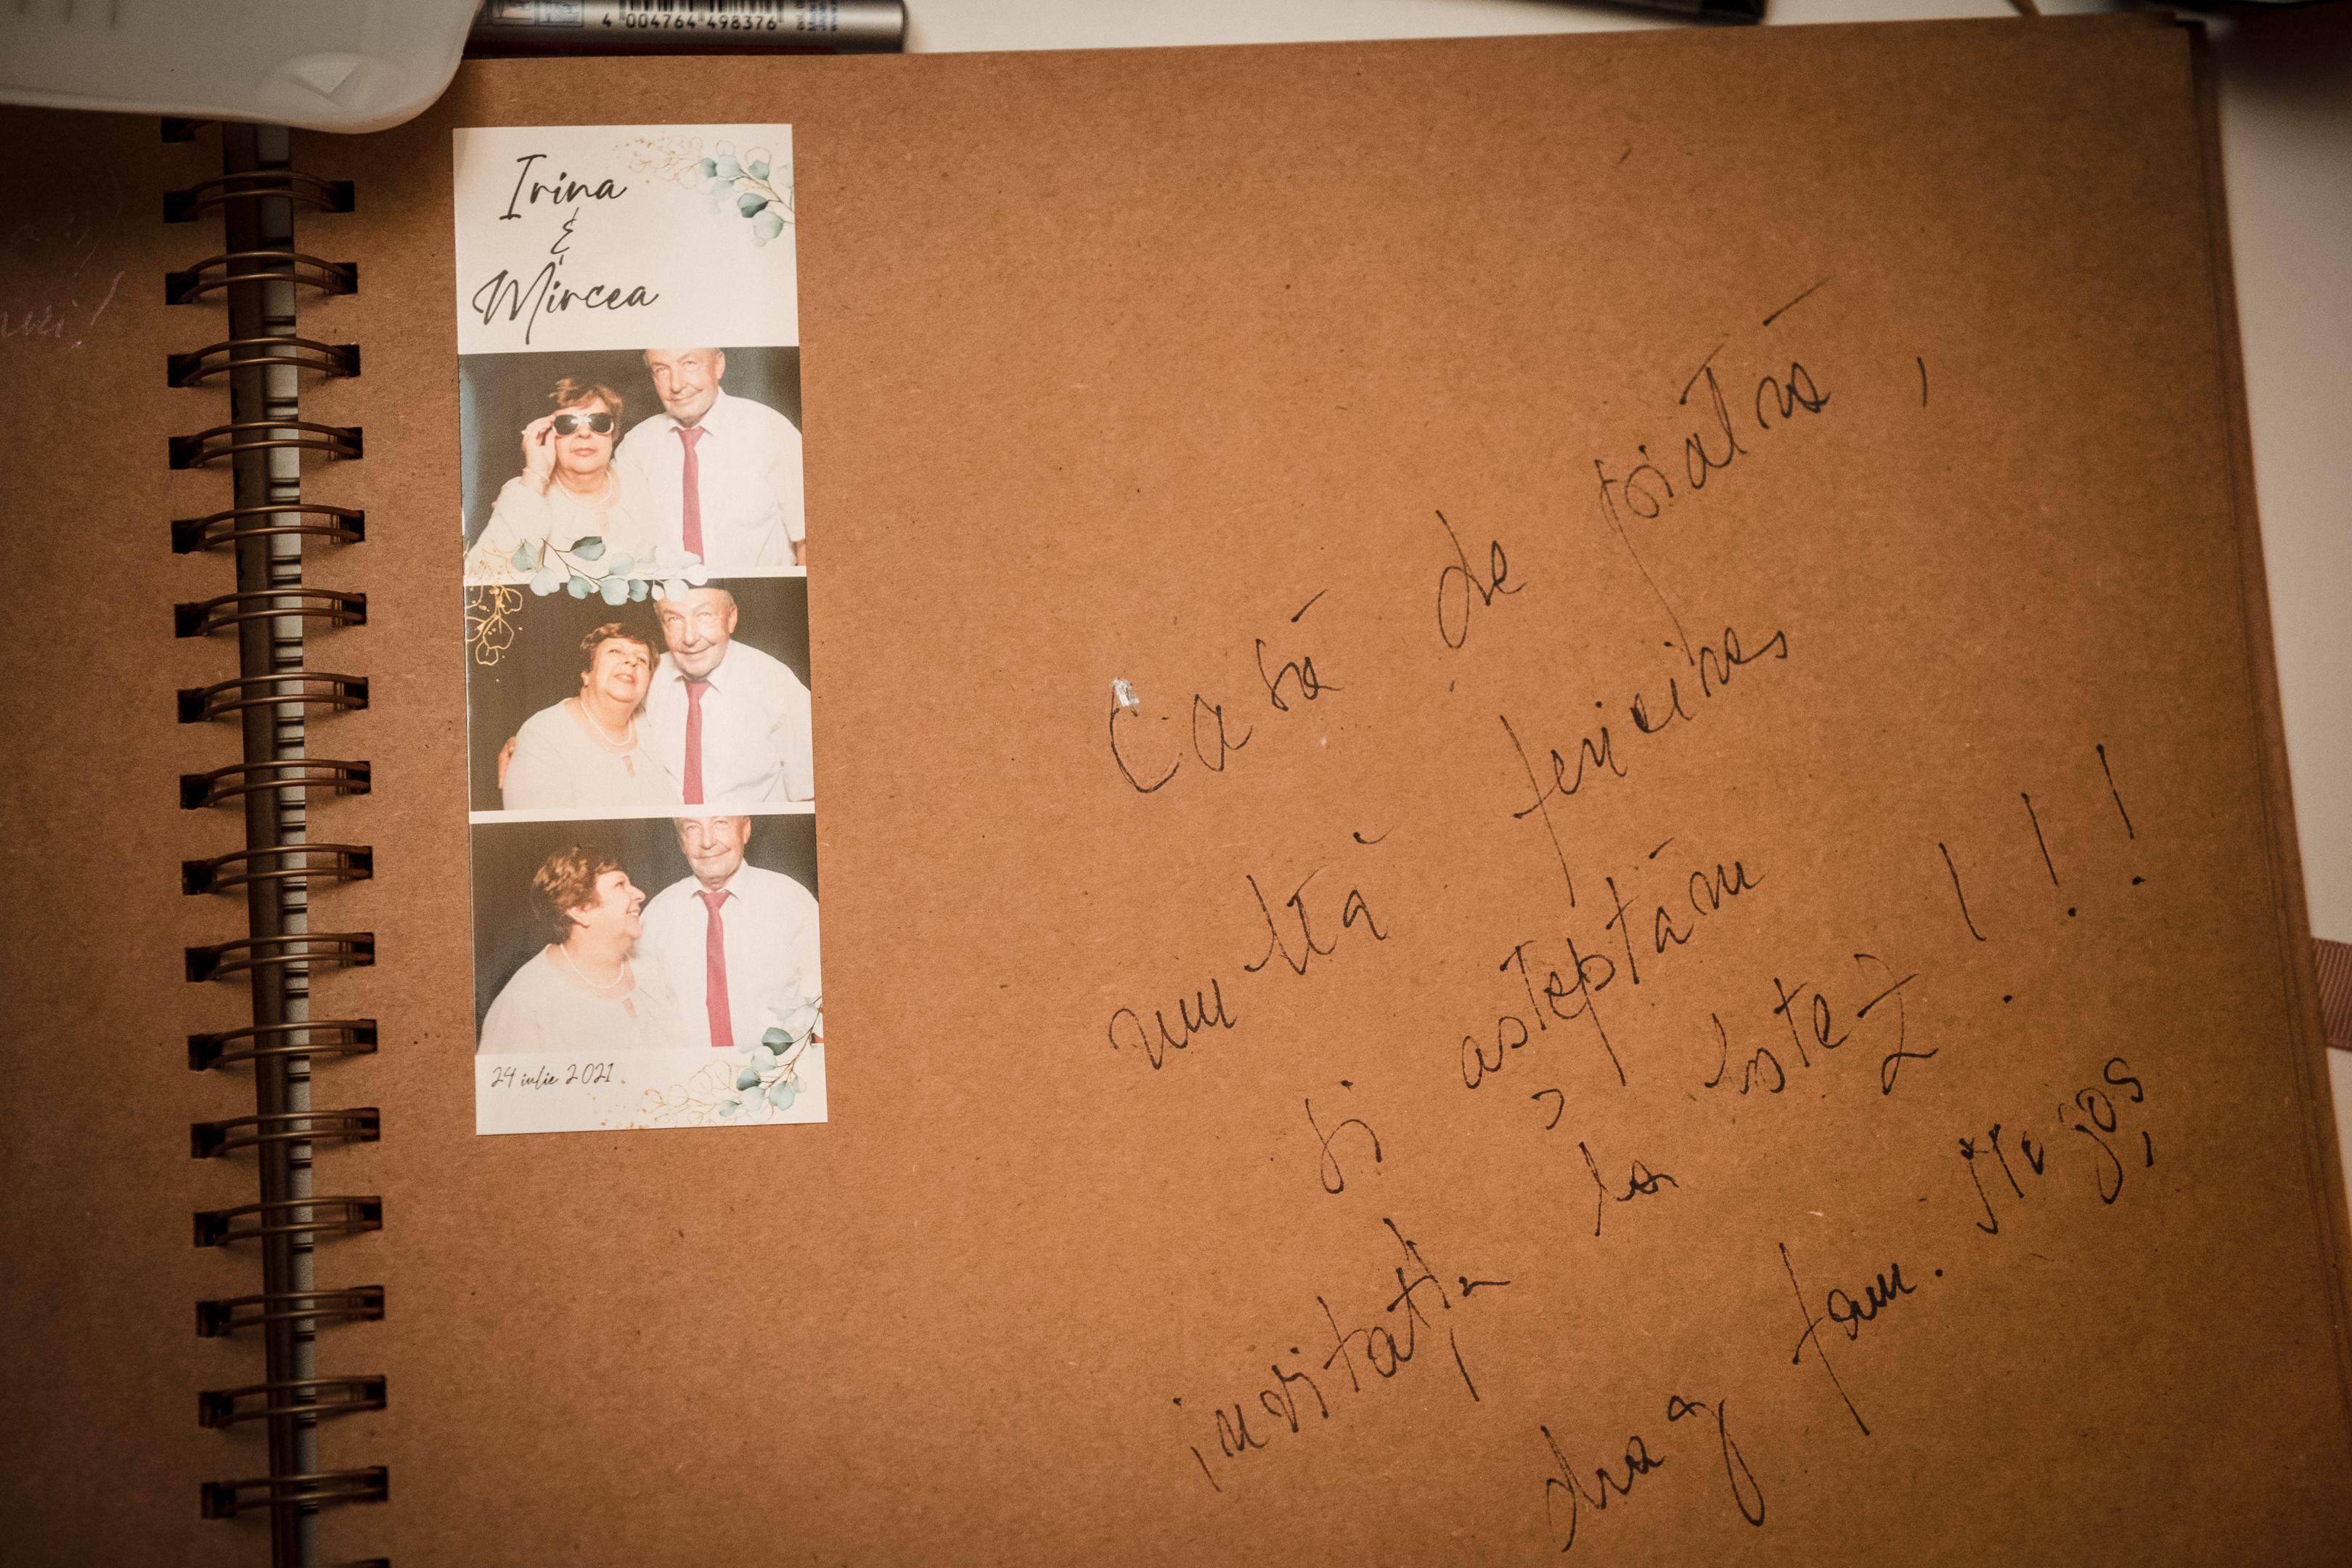 4 004764 498376
Irina
&
Mircea
24 iulie 2021
Casă de piatră,
multă fericire
și așteptăm
invitația la botez!!!
drag fam. Mejoș